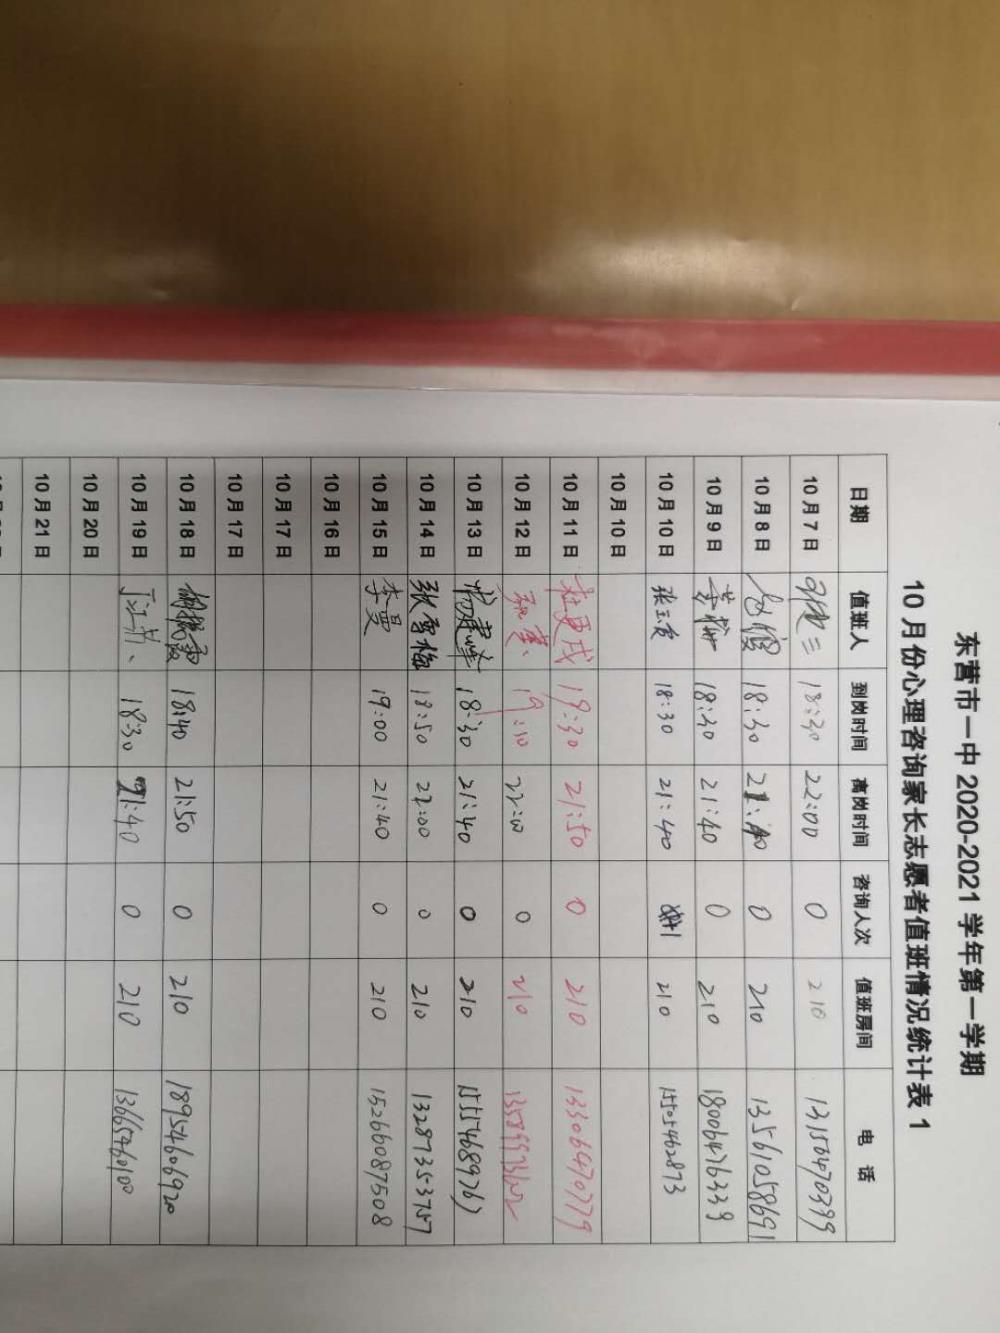 东营市一中 2020-2021 学年第一学期
10 月份心理咨询家长志愿者值班情况统计表 1
日期 值班人 到岗时间 离岗时间 咨询人次 值班房间 电 话
10 月 7 日 18:30 22:00 0 210
10 月 8 日 18:30 0 210 13561058691
10 月 9 日 18:30 21:40 0 210 18006476339
10 月 10 日 18:30 21:40 210 15505462873
10 月 10 日
10 月 11 日 19:30 21:50 0 210 13306470779
10 月 12 日 19:10 22:00 0 210
10 月 13 日 18:30 21:40 0 210 15557468976
10 月 14 日 张雪梅 18:50 22:00 0 210 13287353757
10 月 15 日 李曼 19:00 21:40 0 210 15266087508
10 月 16 日
10 月 17 日
10 月 17 日
10 月 18 日 18:40 21:50 0 210 18954606920
10 月 19 日 18:30 21:40 0 210 13665460100
10 月 20 日
10 月 21 日